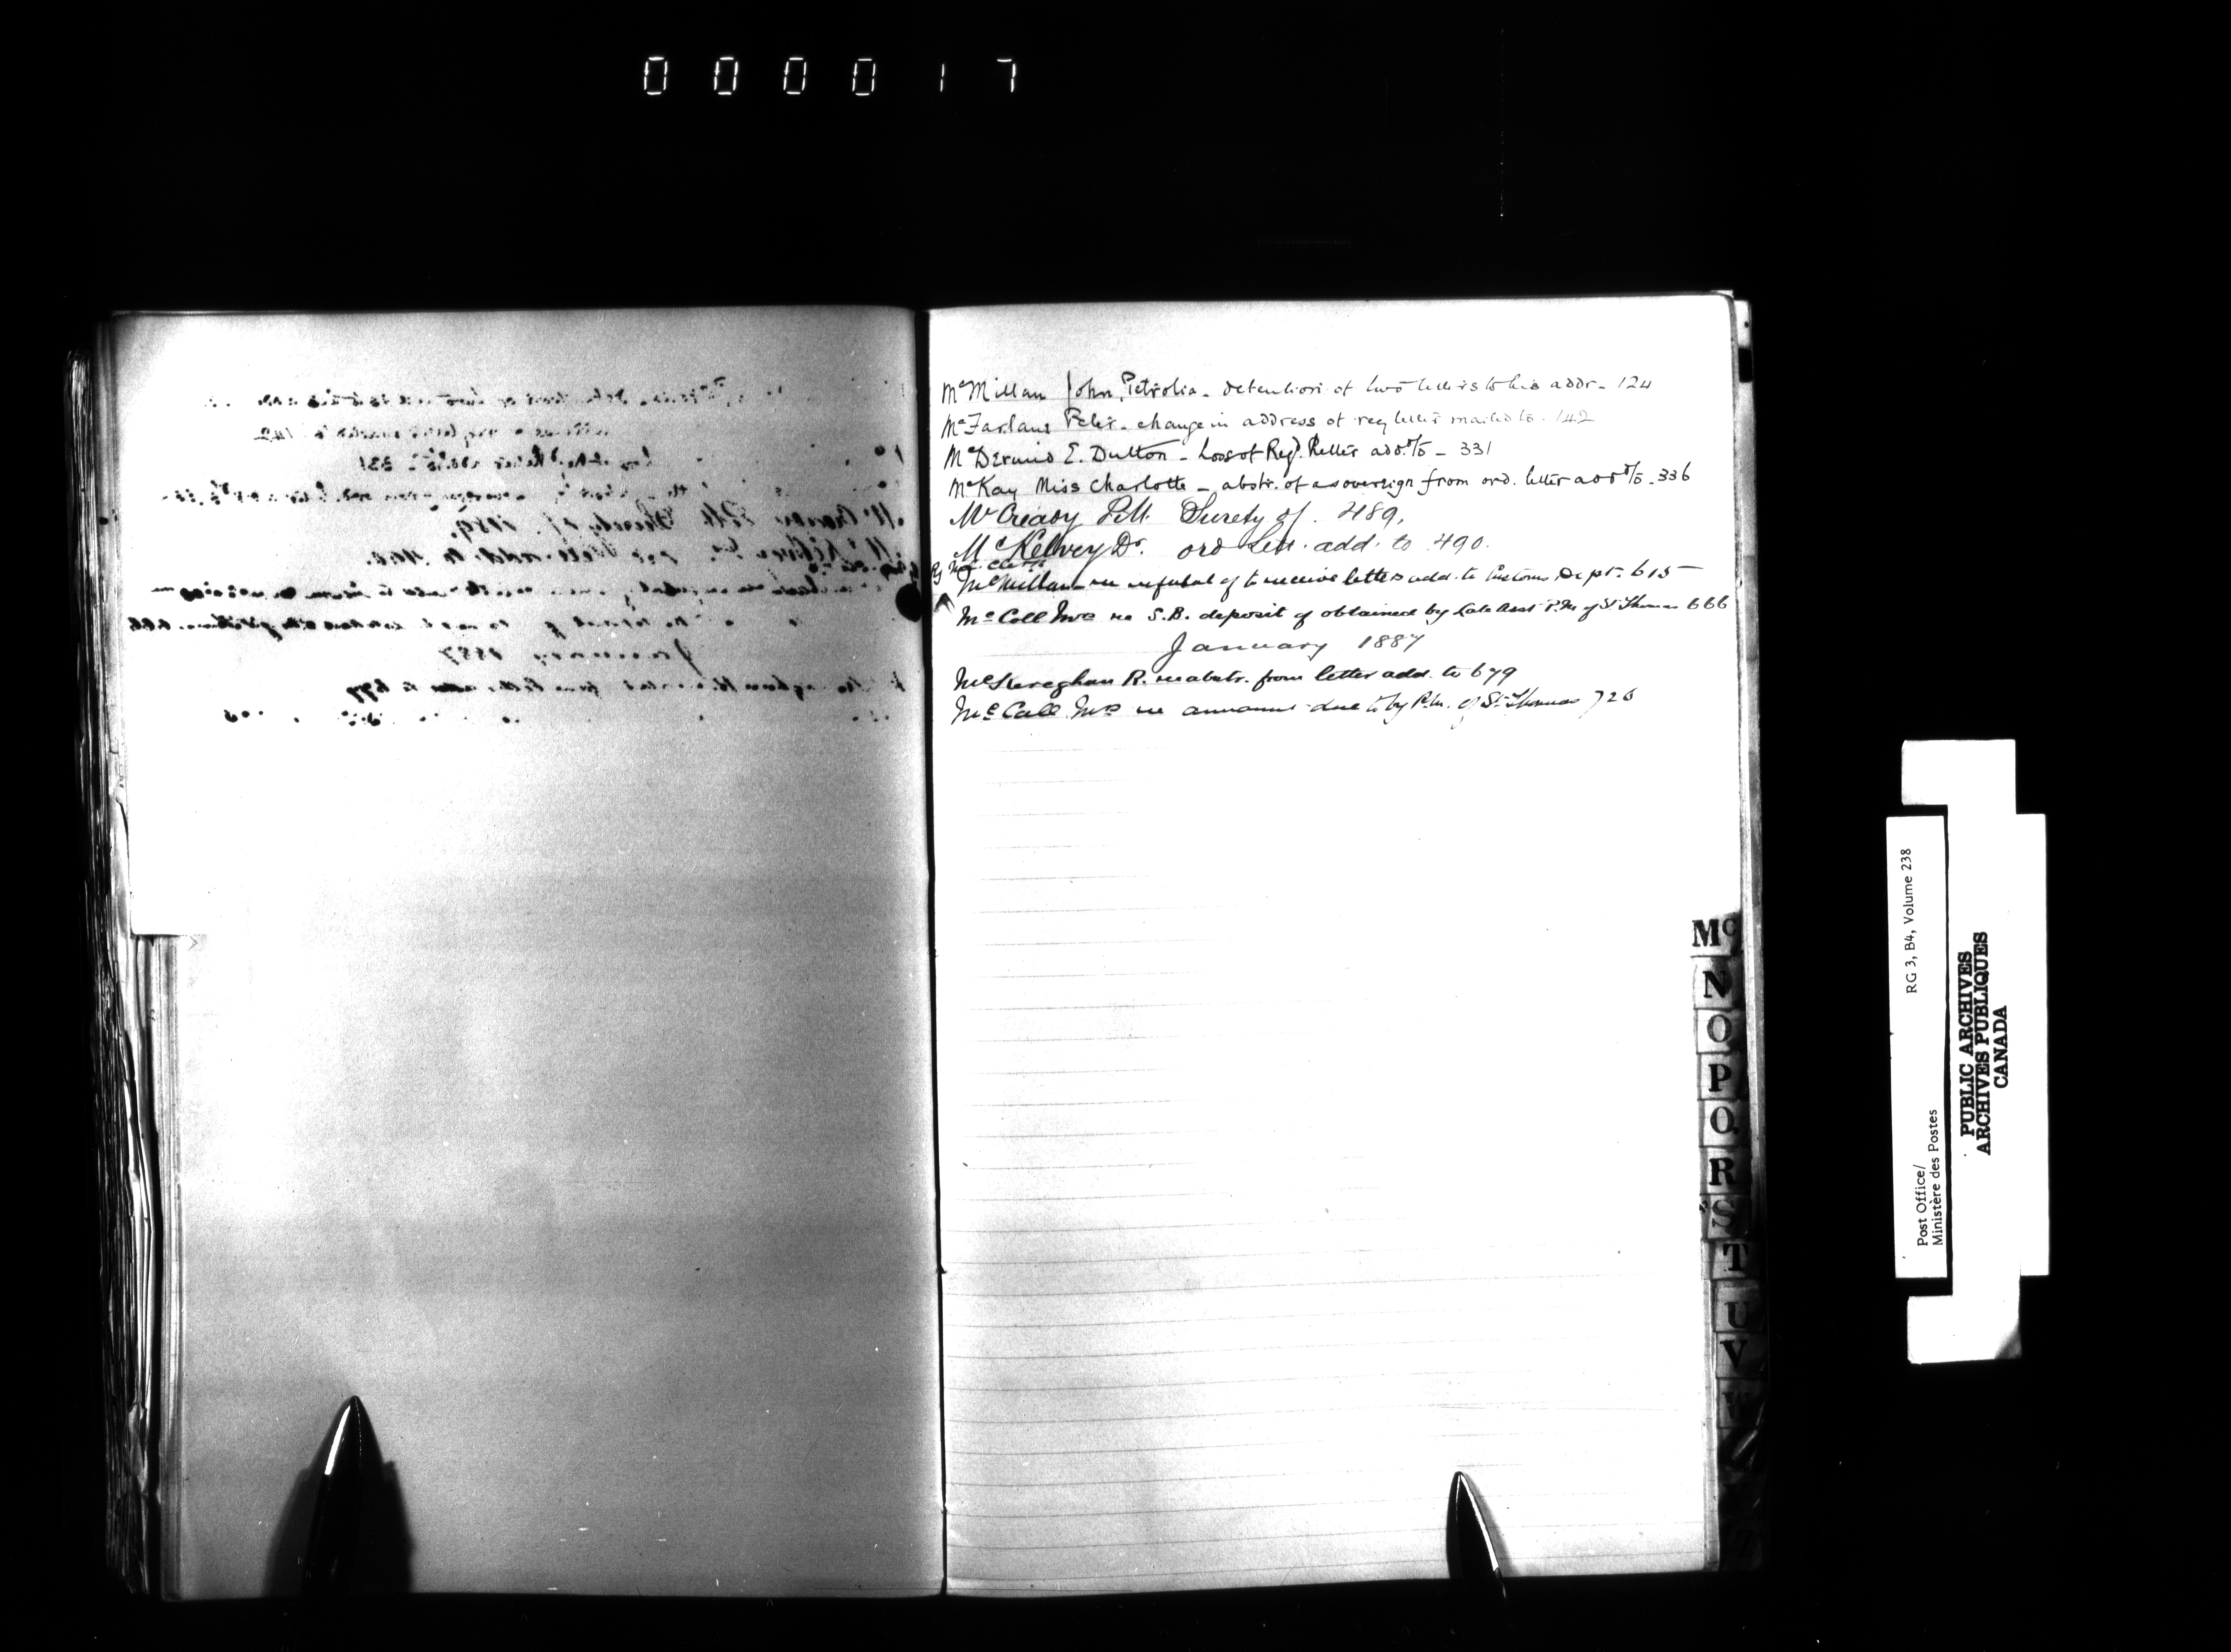 000017
McMillan John, Petrolia - detention of two letters to his addr - 124
McFarlane Peter - change in address of reg letter mailed to - 142
McDermid E. Dutton - Loss of Regd. Letter add. to - 331
McKay Miss Charlotte - abstr. of a sovereign from ord. letter add to - 336
McCready P.M. Surety of. 489.
McKelvey Dr. ord Lett. add. to 490.
McMillan re refusal of to receive letters add. to Customs Dept. 615
McColl Mrs re S.B. deposit of obtained by Late Asst P.M. of St Thomas 666
January 1887
R. re abstr. from letter add. to 679
McCall Mrs re amount due to by P.M. of St Thomas 726
Mc
N
O
P
Q
R
S
T
U
V
W
Post Office/
Ministère des Postes
RG 3, B4, Volume 238
PUBLIC ARCHIVES
ARCHIVES PUBLIQUES
CANADA